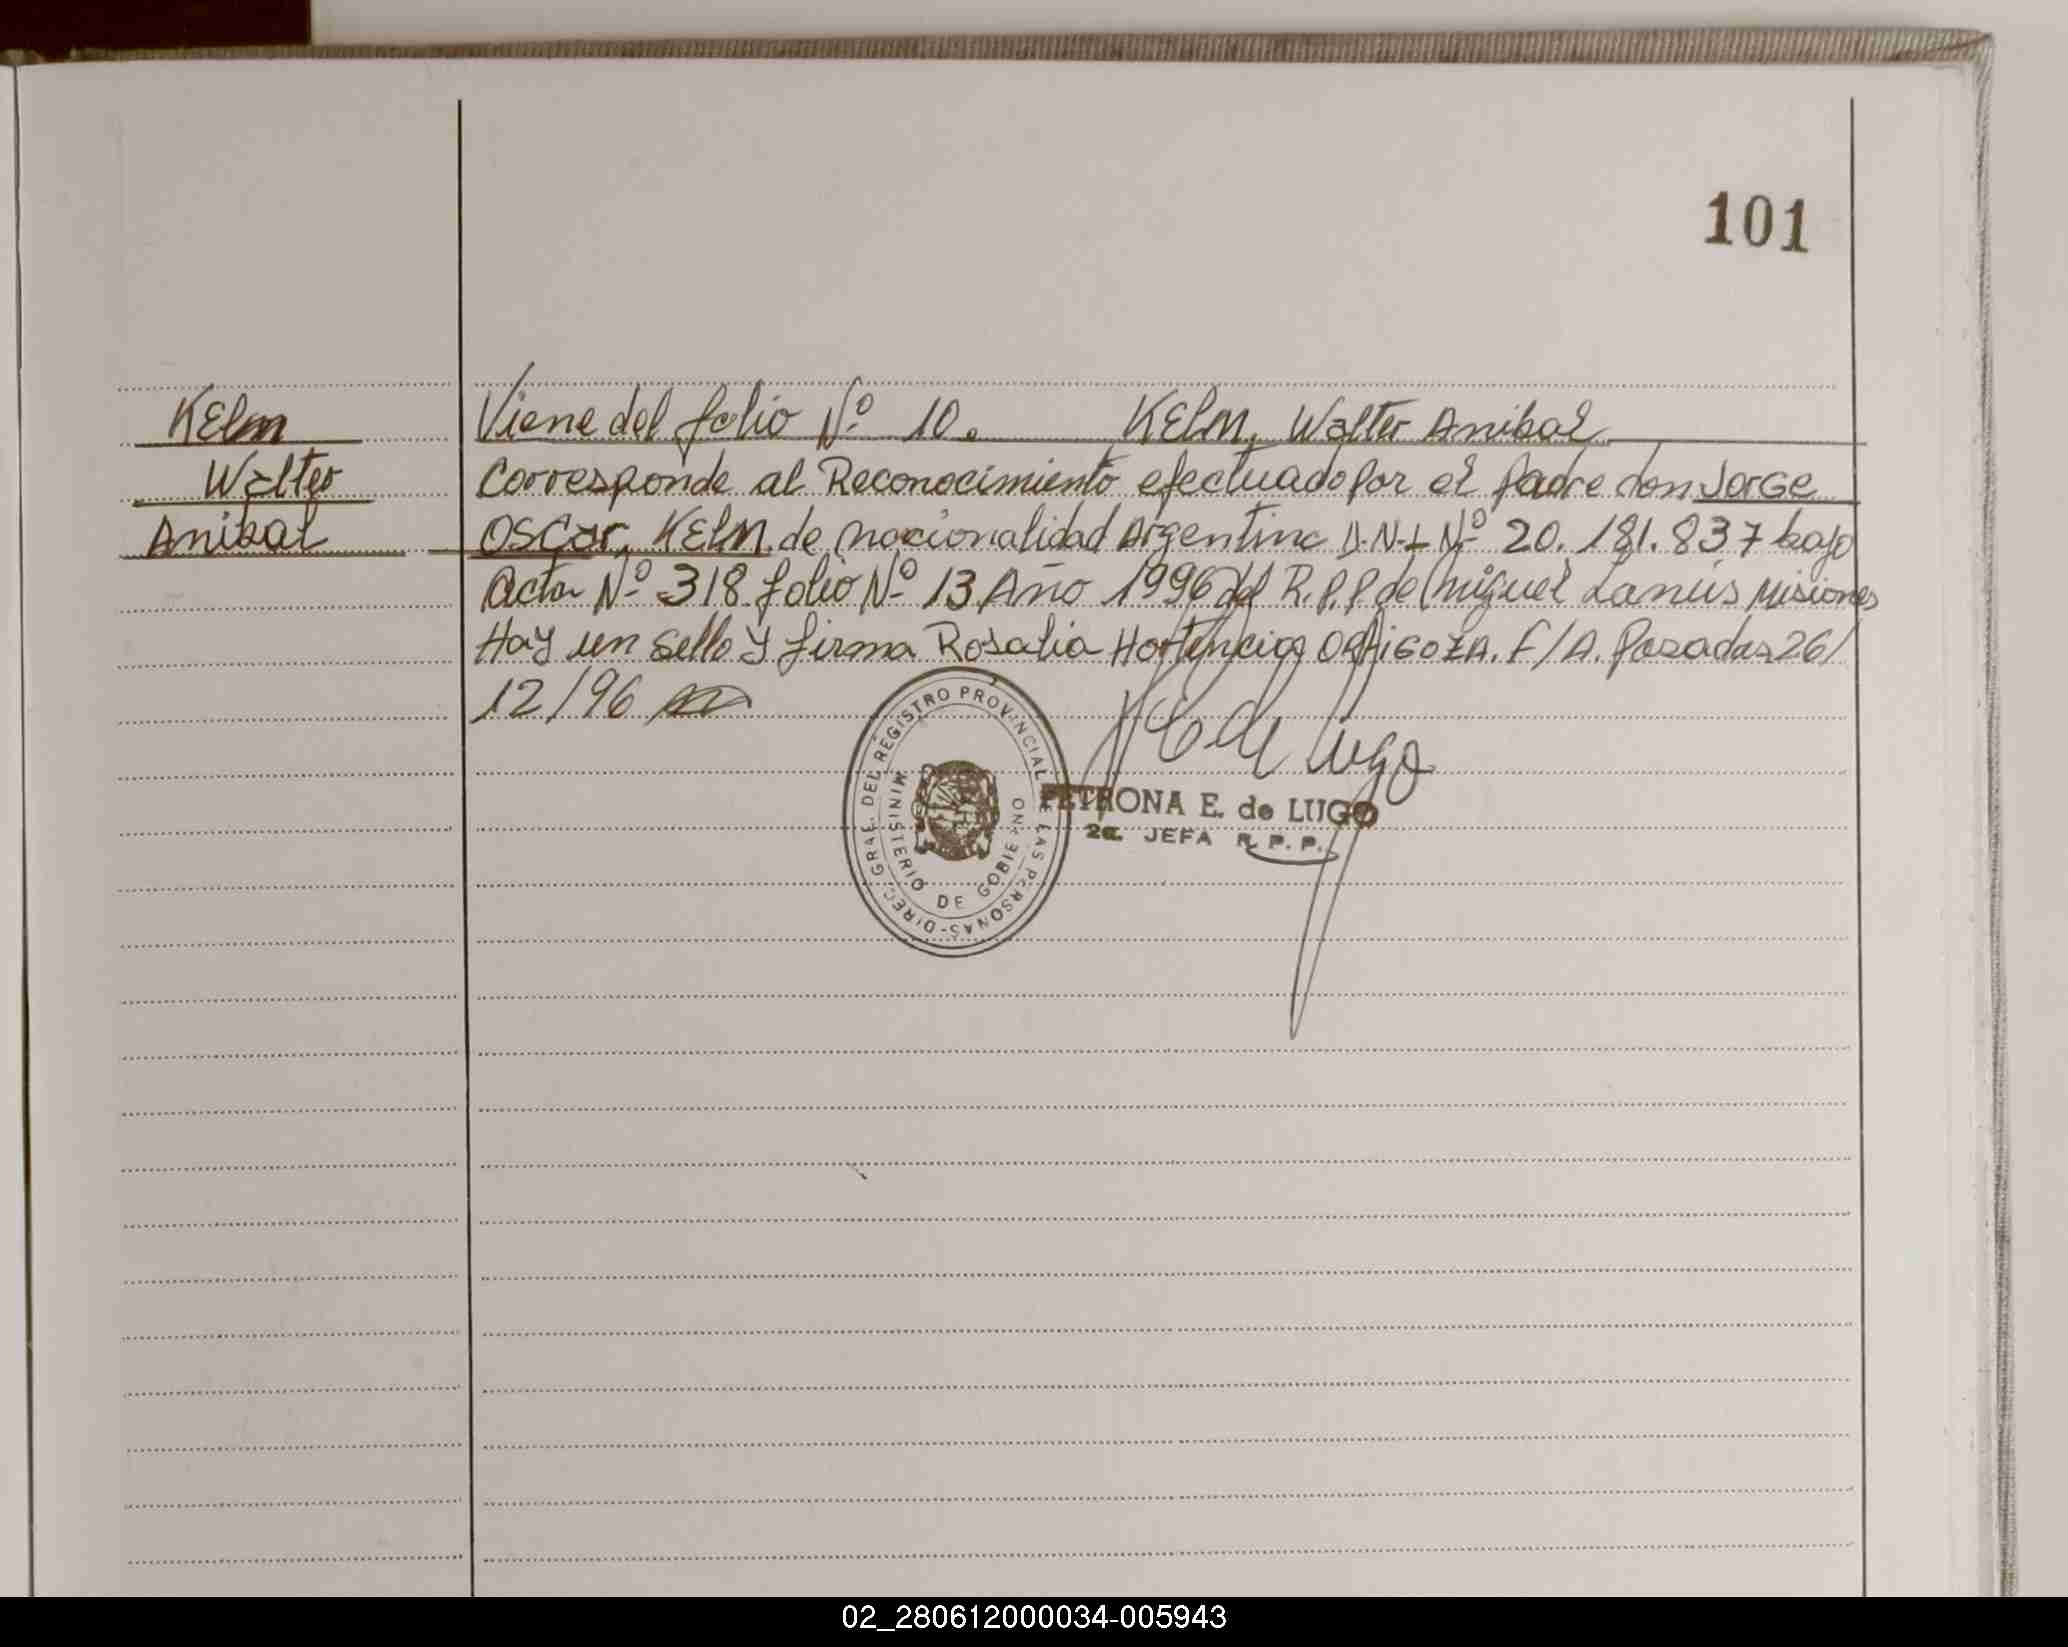 101
Kelm
Walter
Anibal
Viene del folio Nº 10. Kelm, Walter Anibal
Corresponde al Reconocimiento efectuado por el padre don Jorge
Oscar, Kelm de nacionalidad Argentina D.N.I Nº 20.181.837 bajo
Acta Nº 318 folio Nº 13 Año 1996 del R.P.P de Miguel Lanús Misiones
Hay un sello y firma Rosalia Hortencia ORTIGOZA. F/A. Posadas 26/
12/96
DIREC. GRAL. DEL REGISTRO PROVINCIAL DE LAS PERSONAS-
MINISTERIO DE GOBIERNO
Lugo
PETRONA E. de LUGO
2a. JEFA R.P.P.
02_280612000034-005943